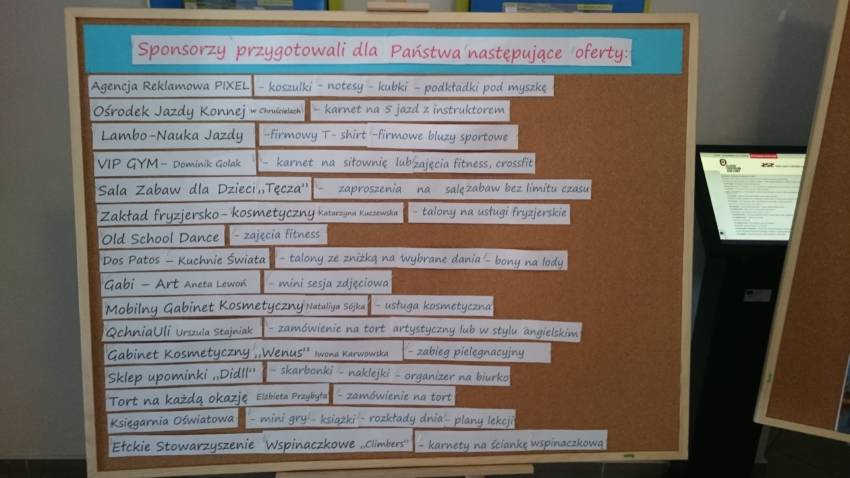 Sponsorzy przygotowali dla Państwa następujące oferty:
Agencja Reklamowa PIXEL - koszulki - notesy - kubki - podkładki pod myszkę
Ośrodek Jazdy Konnej w Chruścielach - karnet na 5 jazd z instruktorem
Lambo-Nauka Jazdy -firmowy T-shirt -firmowe bluzy sportowe
VIP GYM- Dominik Golak - karnet na siłownię lub zajęcia fitness, crossfit
Sala Zabaw dla Dzieci „Tęcza" - zaproszenia na salę zabaw bez limitu czasu
Zakład fryzjersko-kosmetyczny Katarzyna Kuczewska - talony na usługi fryzjerskie
Old School Dance - zajęcia fitness
Dos Patos - Kuchnie Świata - talony ze zniżką na wybrane dania - bony na lody
Gabi - Art Aneta Lewoń - mini sesja zdjęciowa
Mobilny Gabinet Kosmetyczny Nataliya Sójka - usługa kosmetyczna
QchniaUli Urszula Stajniak - zamówienie na tort artystyczny lub w stylu angielskim
Gabinet Kosmetyczny „Wenus" Iwona Karwowska - zabieg pielęgnacyjny
Sklep upominki „Didll" - skarbonki - naklejki - organizer na biurko
Tort na każdą okazję Elżbieta Przybyła - zamówienie na tort
Księgarnia Oświatowa - mini gry - książki - rozkłady dnia - plany lekcji
Ełckie Stowarzyszenie Wspinaczkowe „Climbers" - karnety na ściankę wspinaczkową